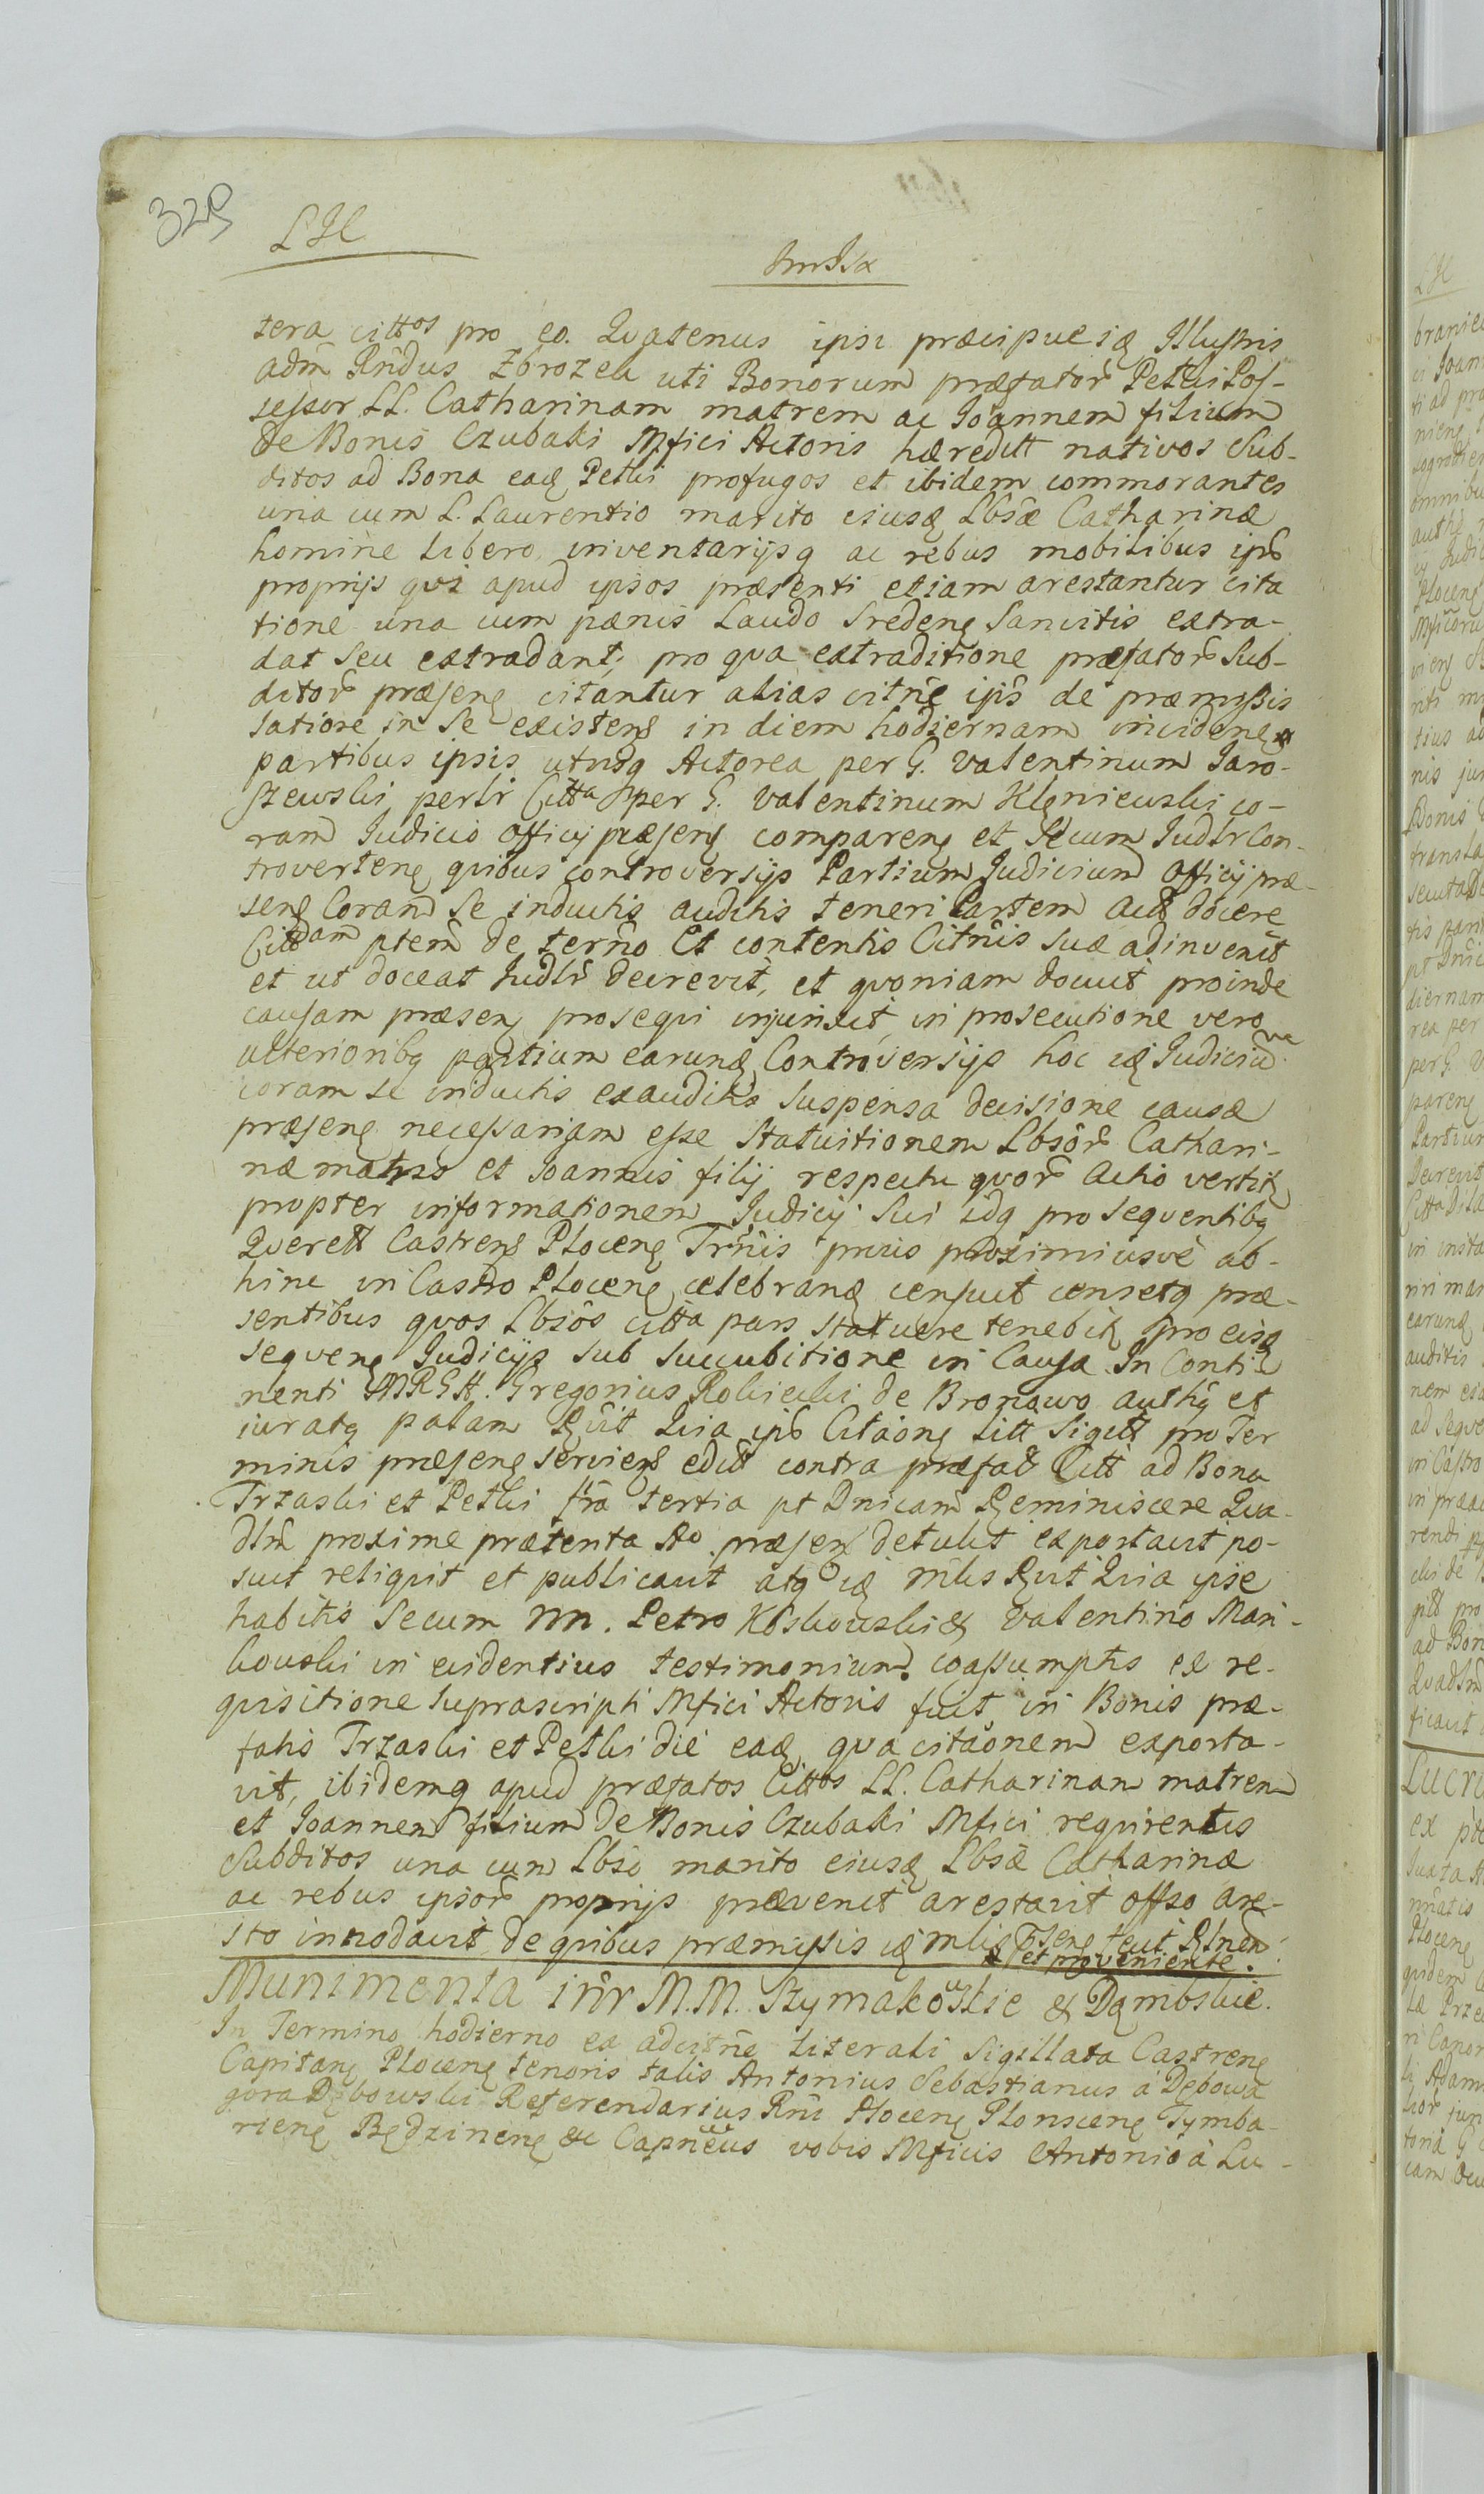 329
LH
tera cittos pro eo. Quatenus ipsi præcipue ią Illustris
adm Rndus Zbrozek uti Bonorum præfator Petki Pos-
sessor LL. Catharinam matrem ac Joannem filium
de Bonis Czubaki Mfici Actoris hæreditt nativos Sub-
ditos ad Bona eaą Petki profugos et ibidem commorantes
una cum L. Laurentio marito eiusą Lbsæ Catharinæ
homine libero inventarijsq ac rebus mobilibus ips
proprijs qvi apud ipsos præsenti etiam arestantur cita
tione una cum pænis Laudo Sredens Sancitis extra-
dat seu extradant; pro qva extraditione præfator Sub-
ditor præsens citantur alias citne ips de præmissis
latiore in se existens in diem hodiernam incidens
partibus ipsis utrisq Actorea per G. Valentinum Jaro-
szewski perlr Citta per G. Valentinum Kleniewski co-
ram Judicio Officij præsens comparens et Secum Judlr Con-
trovertens qvibus controversijs Partium Judicium Officij præ-
sens Coram Se inductis auditis teneri Partem Act docere
Cittam ptem de termo Et contentis Citnis suæ adinvenit
et ut doceat Judlr decrevit, et qvoniam docuit proinde
causam præsens proseqvi injunxit, in prosecutione vero
ulterioribq partium earunq Controversijs hoc ią Judiciu
coram se inductis exauditis suspensa decisione causæ
præsens necessariam esse Statuitionem Lbsor Cathari-
næ matris et Joannis filij respectu qvor Actio vertitr
propter informationem Judicij sui idq pro seqventibq
Qverett Castrens Plocens Trnis prius proximiusve ab-
hinc in Castro Plocens celebrans censuit censetq præ-
sentibus qvos Lbsos citta pars statuere tenebitr pro eisq
seqvens Judicijs sub succubitione in Causa. In Conti-
nenti MRGH. Gregorius Rokicki de Bronowo authq et
juratq palam Rgvit Qvia ips Citaons Litt Sigill pro Ter
minis præsens serviens edit contra præfat Citt ad Bona
Trzaski et Petki fra tertia pt Dnicam Reminiscere Qua-
dlm proxime præterita Ao. præsen detulit exportavit po-
suit reliqvit et publicavit atq ią mlis Rgvit Qvia ipse
habitis Secum NN. Petro Koskowski & Valentino Mari-
kowski in evidentius testimonium coassumptis ex re-
qvisitione suprascripti Mfici Actoris fuit in Bonis præ-
fatis Trzaski et Petki die eaą, qva citaonem exporta-
vit, ibidemq apud præfatos Cittos LL. Catharinam matrem
et Joannem filium de Bonis Czubaki Mfici reqvirentis
Subditos una cum Lbso marito eiusą Lbsæ Catharinæ
ac rebus ipsor proprijs prævenit arestavit offso are-
sto innodavit, de qvibus præmissis ią mlis Tsens fecit Rlnem
et proveniente.
Munimenta intr M.M. Szymakowskie & Dąmbskie.
In Termino hodierno ex adcitne Literali Sigillata Castrens
Capitans Plocens tenoris talis Antonius Sebastianus à Dębowa
gora Dębowski Referendarius Rni Plocens Plonscens Tymba-
riens Będzinens &c Capneus vobis Mficis Antonio à Lu-